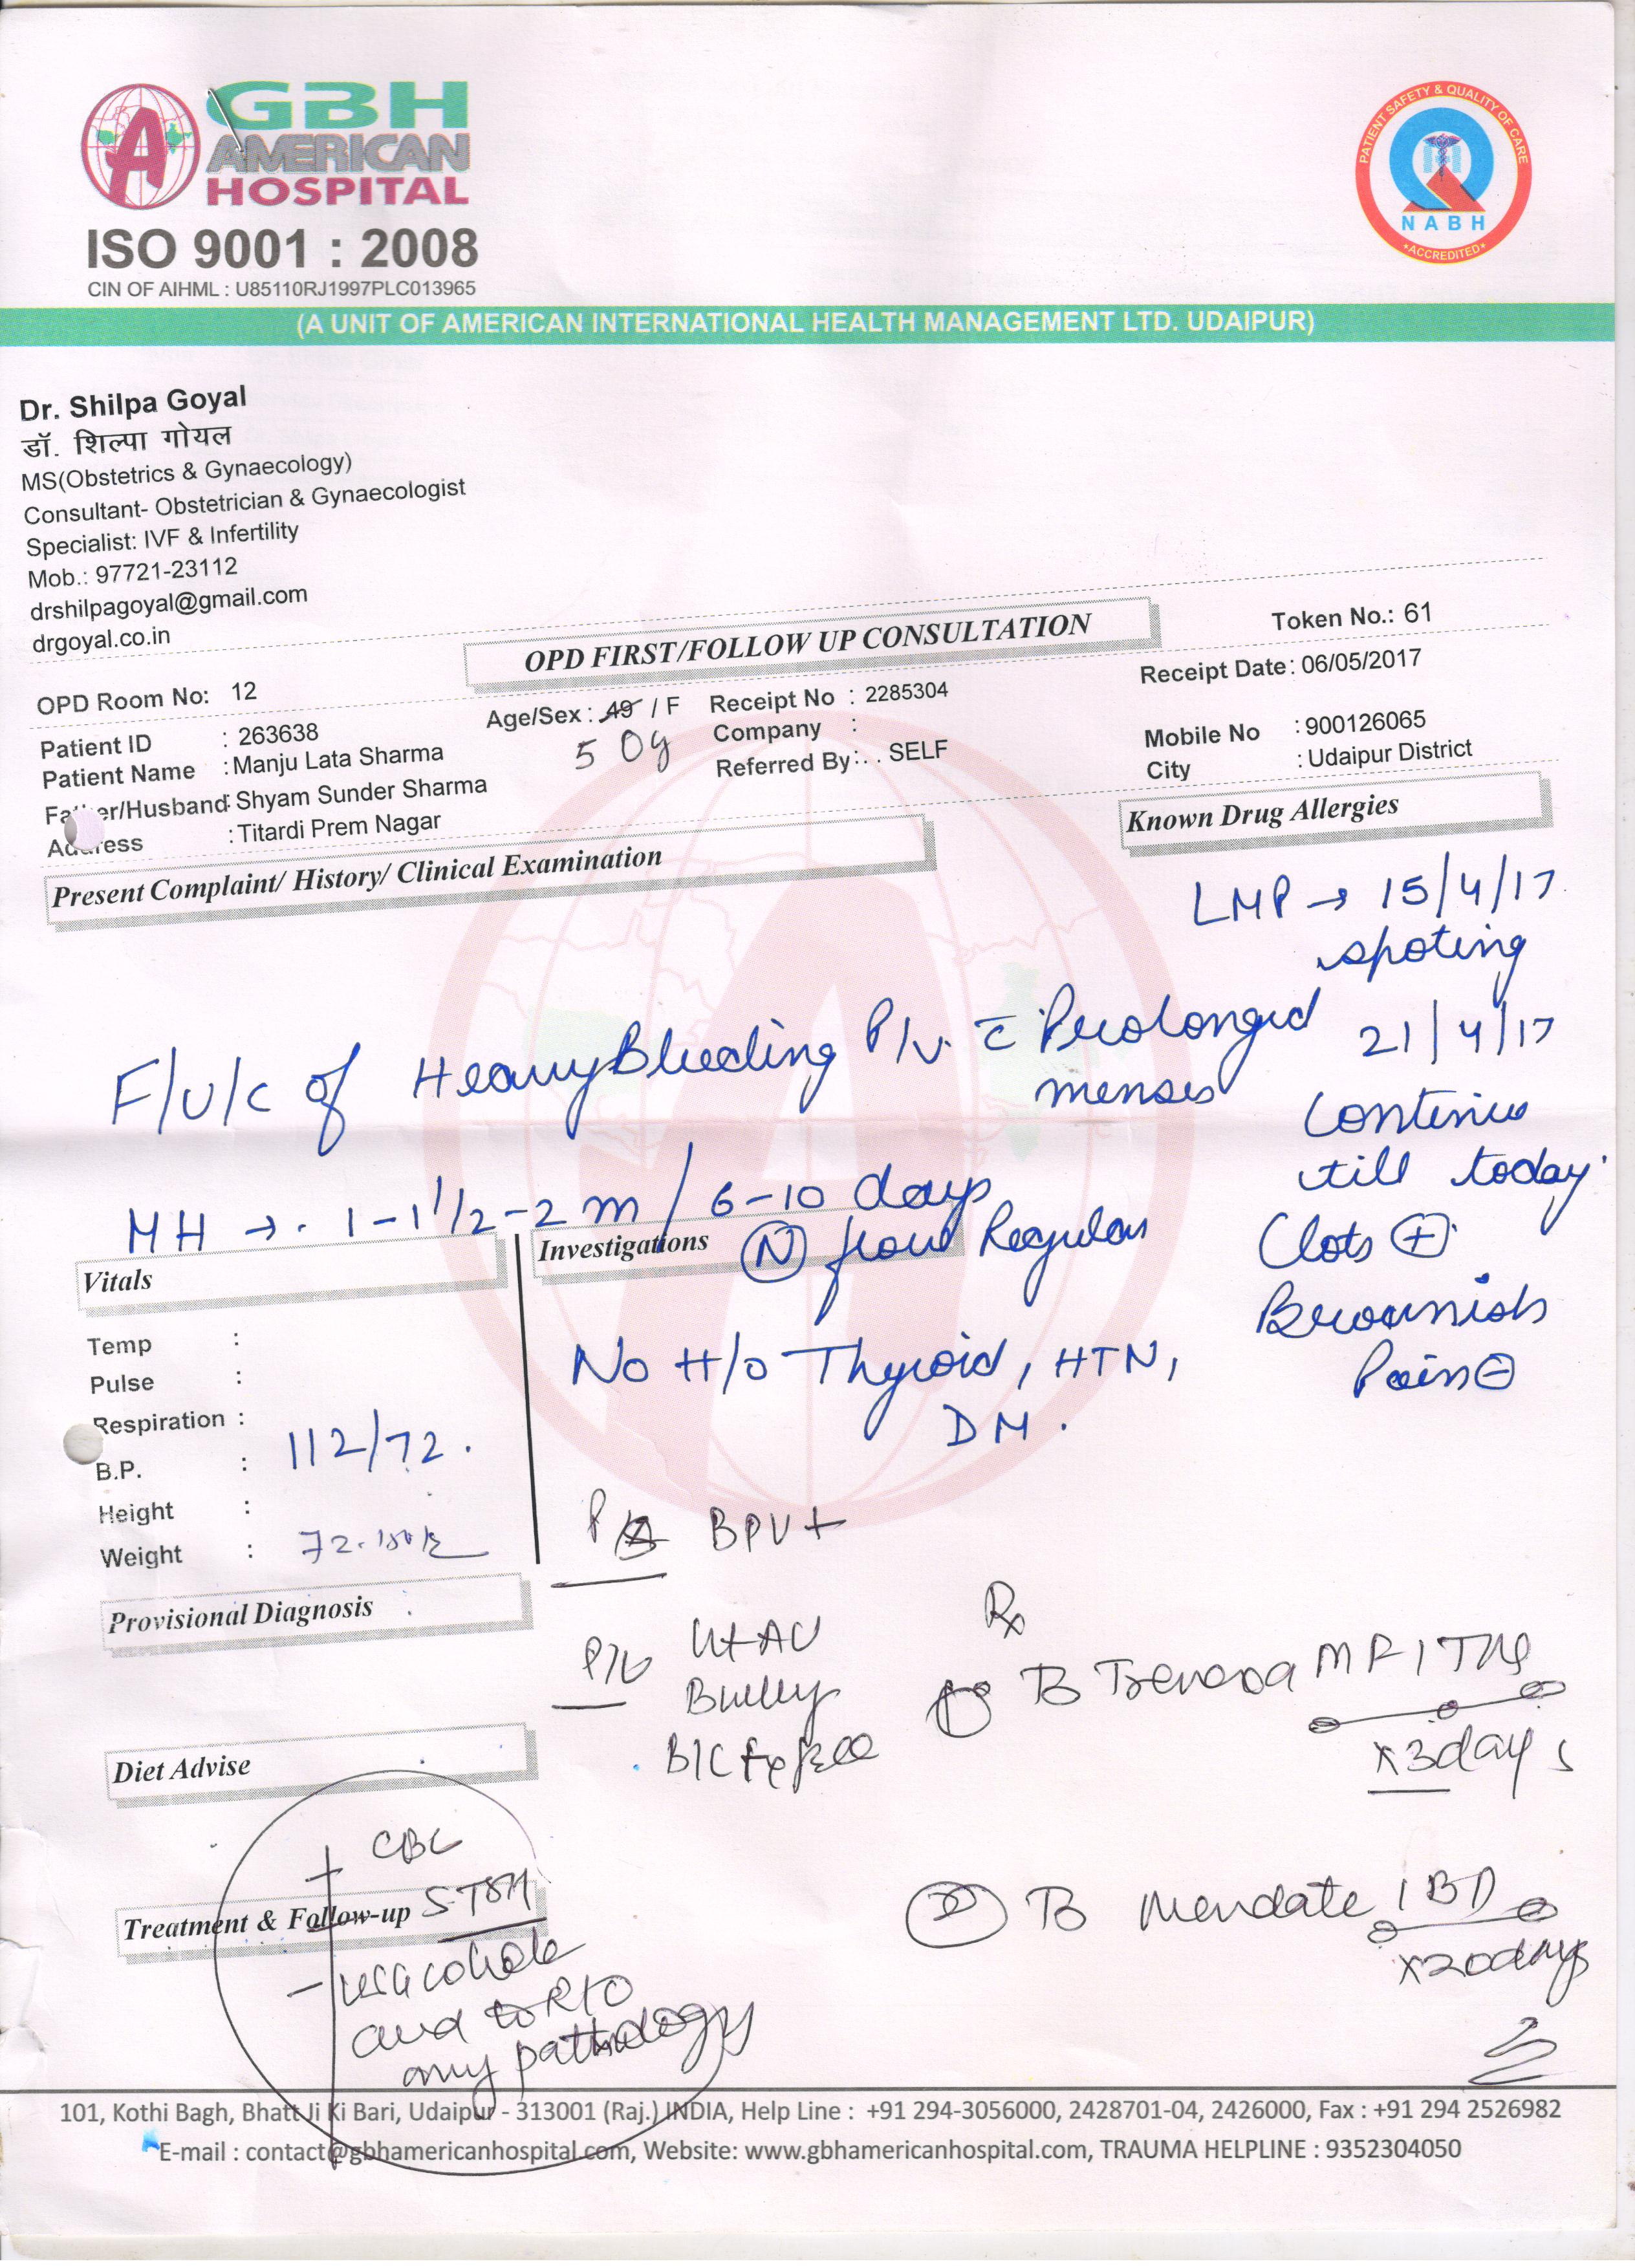 GBH
AMERICAN
HOSPITAL
ISO 9001 : 2008
CIN OF AIHML : U85110RJ1997PLC013965
PATIENT SAFETY & QUALITY OF CARE
NABH
ACCREDITED
(A UNIT OF AMERICAN INTERNATIONAL HEALTH MANAGEMENT LTD. UDAIPUR)
Dr. Shilpa Goyal
डॉ. शिल्पा गोयल
MS(Obstetrics & Gynaecology)
Consultant- Obstetrician & Gynaecologist
Specialist: IVF & Infertility
Mob.: 97721-23112
drshilpagoyal@gmail.com
drgoyal.co.in
OPD FIRST/FOLLOW UP CONSULTATION
Token No.: 61
OPD Room No: 12
Receipt Date: 06/05/2017
Patient ID : 263638
Age/Sex : 49 / F
50y
Receipt No : 2285304
Patient Name : Manju Lata Sharma
Company :
Mobile No : 900126065
Father/Husband: Shyam Sunder Sharma
Referred By:. . SELF
City : Udaipur District
Address : Titardi Prem Nagar
Present Complaint/ History/ Clinical Examination
Known Drug Allergies
LMP → 15/4/17
spoting
21/4/17
continue
till today.
Clots ⊕
Brownish
Pain ⊖
F/U/C of Heavy Bleeding P/V. c̄ Prolonged
menses
MH → . 1-1 1/2-2 m / 6-10 days
Ⓝ flow Regular
Vitals
Investigations
No H/o Thyroid, HTN,
DM.
Temp :
Pulse :
Respiration :
B.P. : 112/72.
Height :
Weight : 72.
BPV+
Provisional Diagnosis
P/V UtAV
Bulky
B/L fx free
Rx
MF 1 TDS
x3days
Diet Advise
CBC
Treatment & Follow-up
S. TSH
any pathology
② 1 BD
x20days
101, Kothi Bagh, Bhatt Ji Ki Bari, Udaipur - 313001 (Raj.) INDIA, Help Line : +91 294-3056000, 2428701-04, 2426000, Fax : +91 294 2526982
E-mail : contact@gbhamericanhospital.com, Website: www.gbhamericanhospital.com, TRAUMA HELPLINE : 9352304050